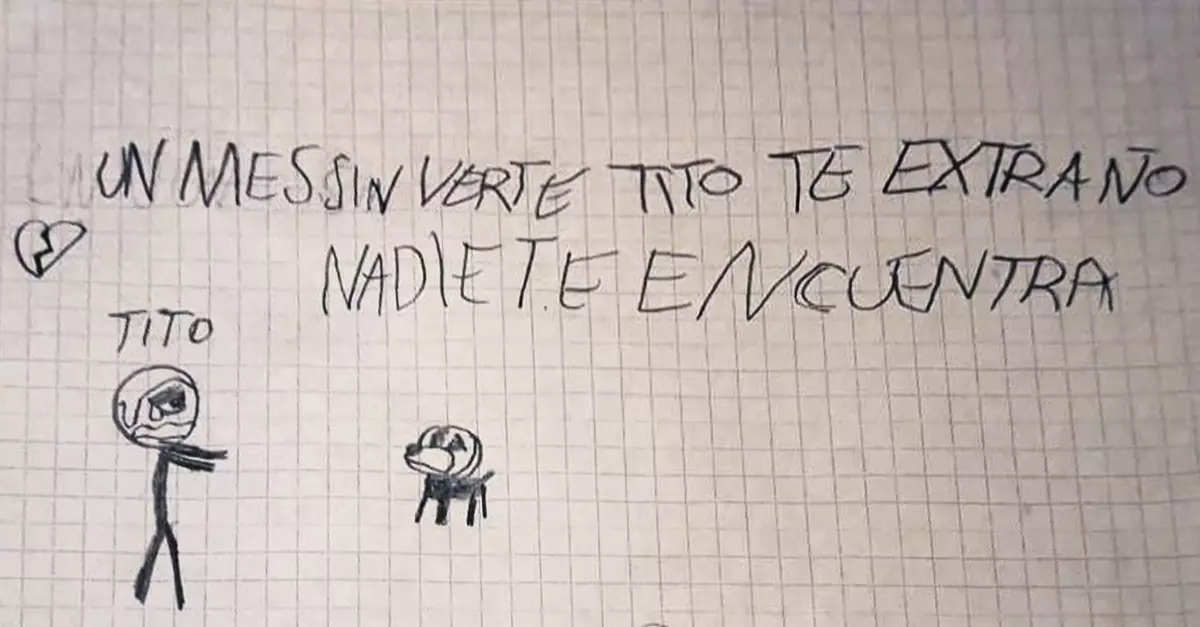 UN MES SIN VERTE TITO TE EXTRAÑO
NADIE TE ENCUENTRA
TITO